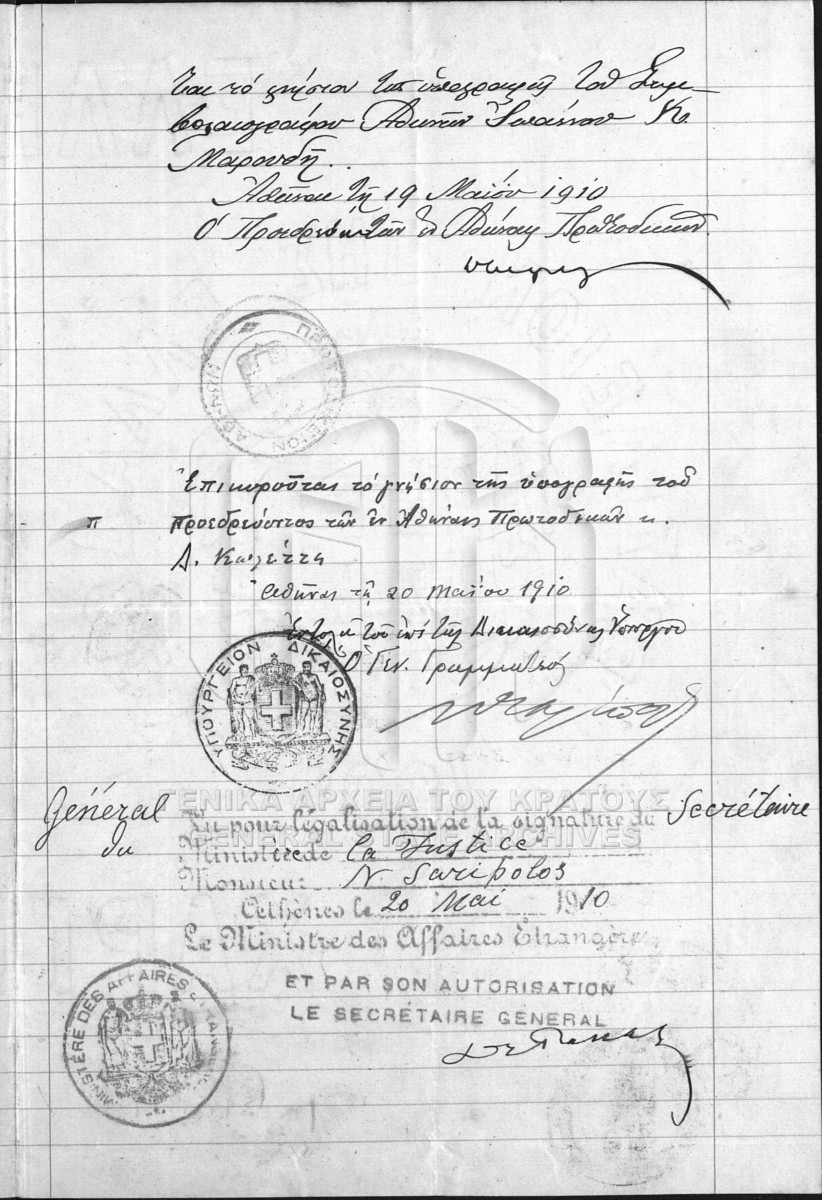 και τό γνήσιον της υπογραφής του Συμ-
βολαιογράφου Αθηνών Ιωάννου Κ.
Μαρούδη.
Αθήναι τη 19 Μαΐου 1910
Ο Προεδρεύων των εν Αθήναις Πρωτοδικών
ΠΡΩΤΟΔΙΚΕΙΟΝ ΑΘΗΝΩΝ
Ἐπικυροῦται τό γνήσιον τῆς ὑπογραφῆς τοῦ
π προεδρεύοντος τῶν ἐν Ἀθήναις Πρωτοδικῶν κ.
Δ.
Ἀθῆναι τῇ 20 Μαΐου 1910
Ἐντολῇ τοῦ ἐπί τῆς Δικαιοσύνης Ὑπουργοῦ
Ὁ Γεν. Γραμματεύς
ΥΠΟΥΡΓΕΙΟΝ ΔΙΚΑΙΟΣΥΝΗΣ
ΓΕΝΙΚΑ ΑΡΧΕΙΑ ΤΟΥ ΚΡΑΤΟΥΣ
GENERAL STATE ARCHIVES
Vu pour légalisation de la signature du Secrétaire
Général du Ministère de la Justice
Monsieur N. Saripolos
Athènes le 20 Mai 1910
Le Ministre des Affaires Etrangères
ET PAR SON AUTORISATION
LE SECRÉTAIRE GENERAL
MINISTÈRE DES AFFAIRES ETRANGÈRES